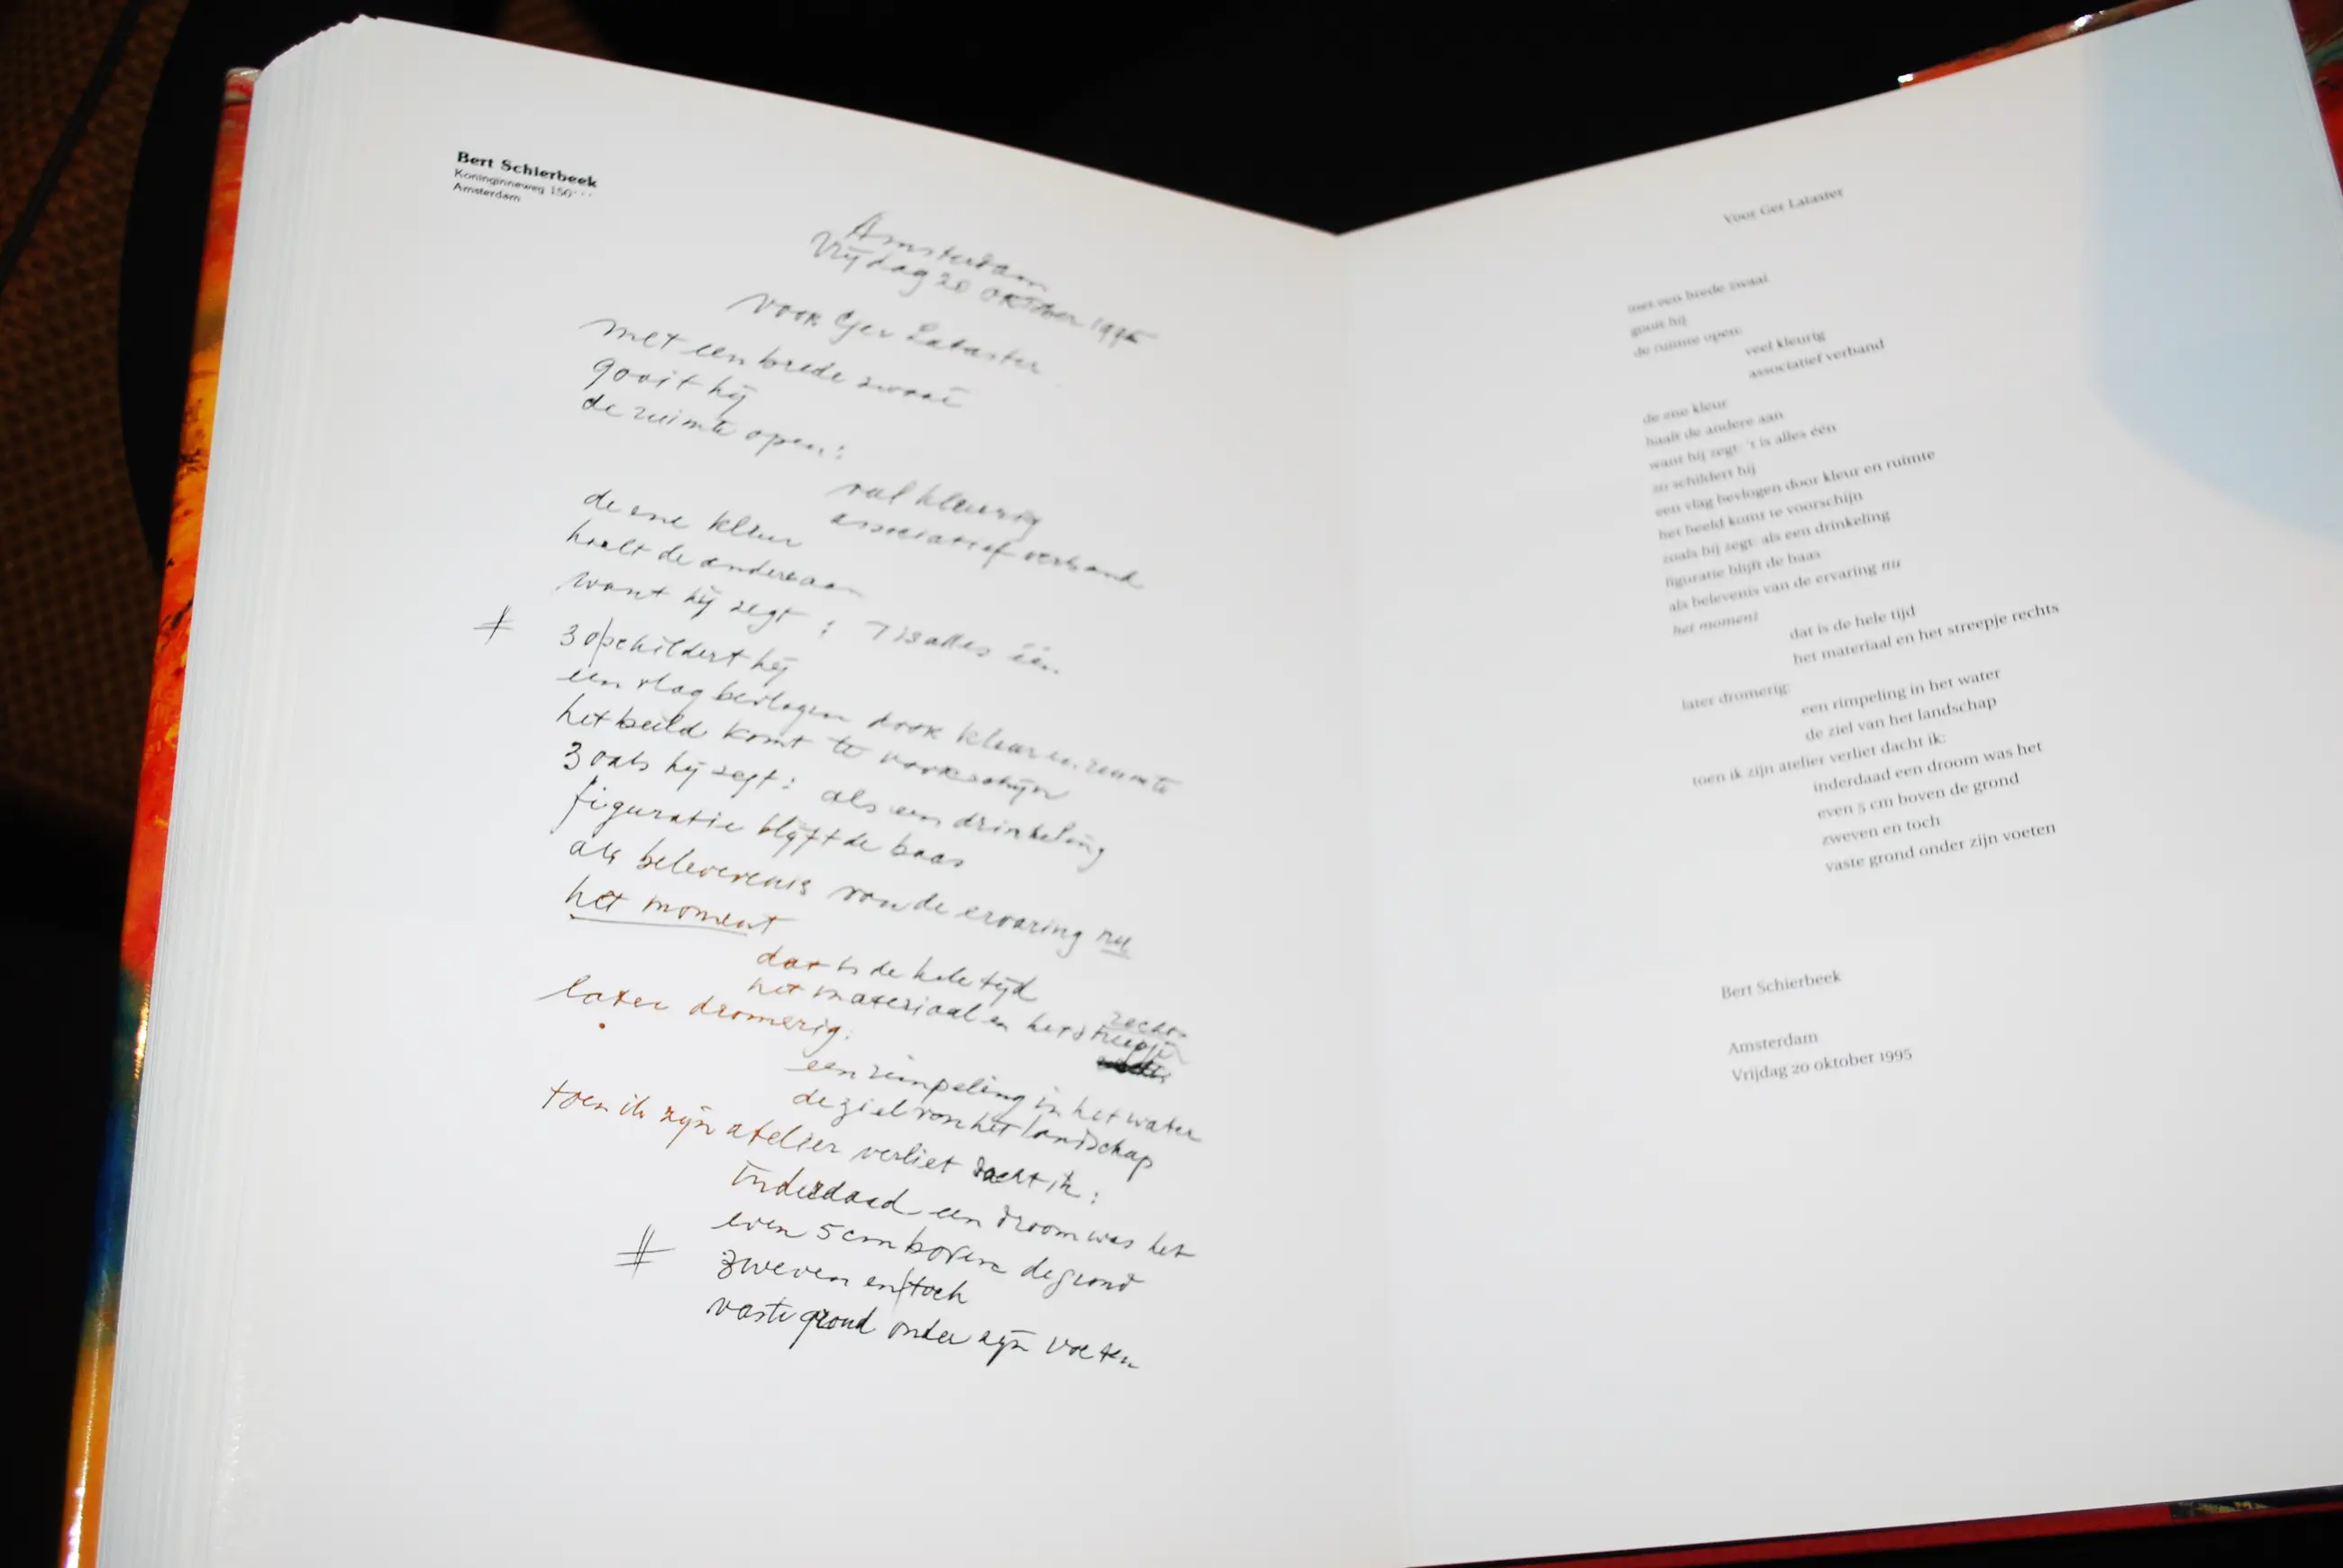 Bert Schierbeek
Koninginneweg
Amsterdam
Amsterdam
Vrijdag 20 oktober 1995
voor Ger Lataster
met een brede zwaai
gooit hij
de ruimte open:
veel kleurig
associatief verband
de ene kleur
haalt de andere aan
want hij zegt: 't is alles één
zo schildert hij
een vlag bevlogen door kleur en ruimte
het beeld komt te voorschijn
zoals hij zegt: als een drinkeling
figuratie blijft de baas
als belevenis van de ervaring nu
het moment
dat is de hele tijd
het materiaal en het streepje
rechts
later dromerig:
een rimpeling in het water
de ziel van het landschap
toen ik zijn atelier verliet dacht ik:
inderdaad een droom was het
even 5 cm boven de grond
zweven en toch
vaste grond onder zijn voeten
Voor Ger Lataster
met een brede zwaai
gooit hij
de ruimte open:
veel kleurig
associatief verband
de ene kleur
haalt de andere aan
want hij zegt: 't is alles één
zo schildert hij
een vlag bevlogen door kleur en ruimte
het beeld komt te voorschijn
zoals hij zegt: als een drinkeling
figuratie blijft de baas
als belevenis van de ervaring nu
het moment
dat is de hele tijd
het materiaal en het streepje rechts
later dromerig:
een rimpeling in het water
de ziel van het landschap
toen ik zijn atelier verliet dacht ik:
inderdaad een droom was het
even 5 cm boven de grond
zweven en toch
vaste grond onder zijn voeten
Bert Schierbeek
Amsterdam
Vrijdag 20 oktober 1995